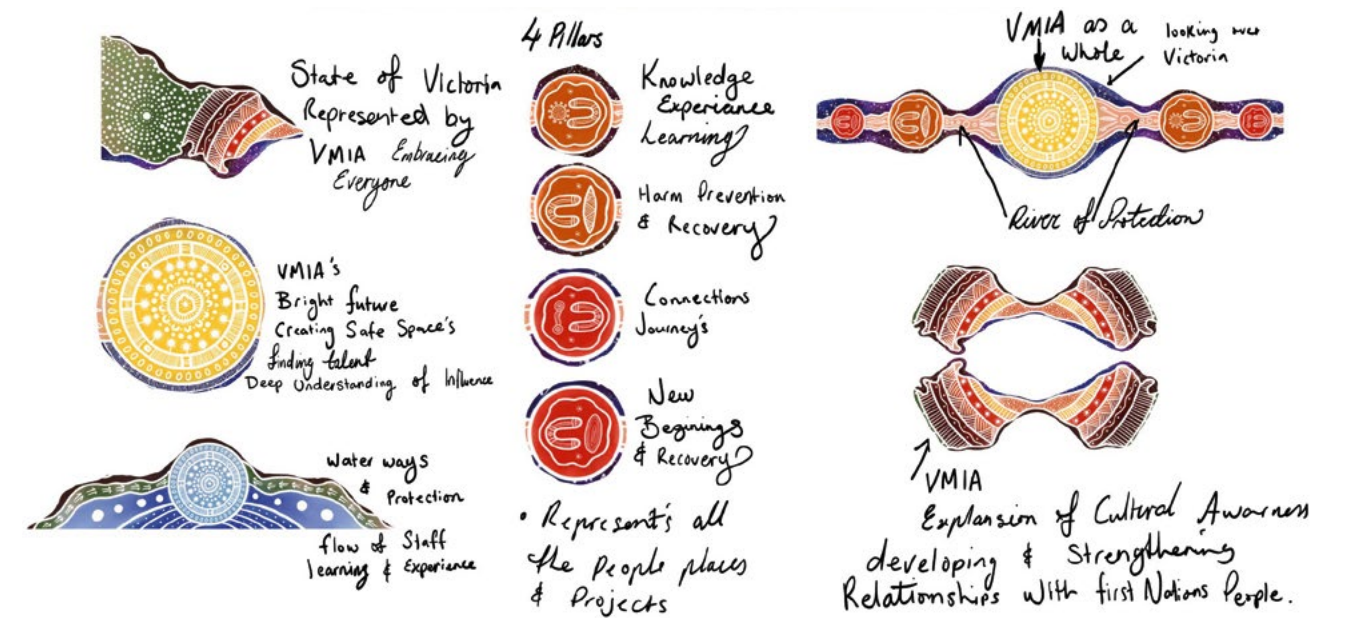 State of Victoria
Represented by
VMIA Embracing
Everyone
VMIA's
Bright future
Creating Safe Space's
finding talent
Deep Understanding of Influence
Water ways
& Protection
flow of Staff
learning & Experience
4 Pillars
Knowledge
Experience
Learning
Harm Prevention
& Recovery
Connections
Journey's
New
Beginings
& Recovery
• Represent's all
the People places
& Projects
VMIA as a
Whole
looking over
Victoria
River of Protection
VMIA
Explansion of Cultural Awarness
developing & Strengthening
Relationships with first Nations People.